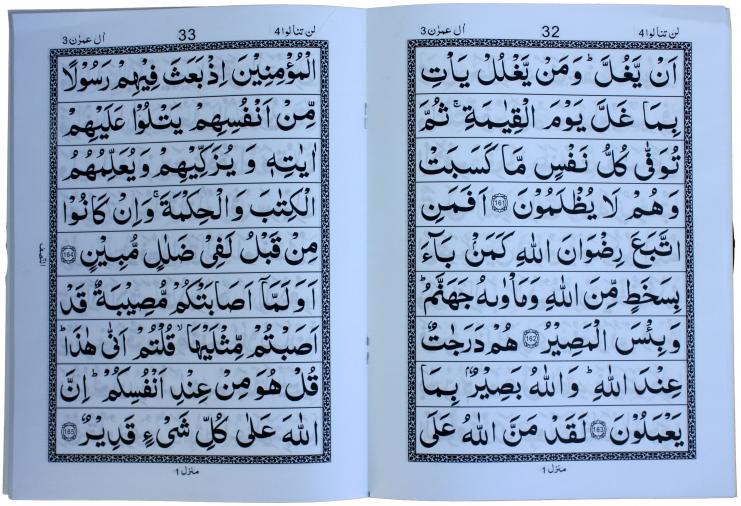 لن تنالوا 4 32 ال عمرٰن 3
اَنْ يَّغُلَّ ؕ وَمَنْ يَّغْلُلْ يَاْتِ
بِمَا غَلَّ يَوْمَ الْقِيٰمَةِ ۚ ثُمَّ
تُوَفّٰى كُلُّ نَفْسٍ مَّا كَسَبَتْ
وَهُمْ لَا يُظْلَمُوْنَ 161 اَفَمَنِ
اتَّبَعَ رِضْوَانَ اللّٰهِ كَمَنْۢ بَآءَ
بِسَخَطٍ مِّنَ اللّٰهِ وَمَاْوٰىهُ جَهَنَّمُ ؕ
وَبِئْسَ الْمَصِيْرُ 162 هُمْ دَرَجٰتٌ
عِنْدَ اللّٰهِ ؕ وَاللّٰهُ بَصِيْرٌۢ بِمَا
يَعْمَلُوْنَ 163 لَقَدْ مَنَّ اللّٰهُ عَلَى
منزل 1
لن تنالوا 4 33 ال عمرٰن 3
الْمُؤْمِنِيْنَ اِذْ بَعَثَ فِيْهِمْ رَسُوْلًا
مِّنْ اَنْفُسِهِمْ يَتْلُوْا عَلَيْهِمْ
اٰيٰتِهٖ وَيُزَكِّيْهِمْ وَيُعَلِّمُهُمُ
الْكِتٰبَ وَالْحِكْمَةَ ۚ وَاِنْ كَانُوْا
مِنْ قَبْلُ لَفِيْ ضَلٰلٍ مُّبِيْنٍ 164
اَوَلَمَّاۤ اَصَابَتْكُمْ مُّصِيْبَةٌ قَدْ
اَصَبْتُمْ مِّثْلَيْهَا ۙ قُلْتُمْ اَنّٰى هٰذَا ؕ
قُلْ هُوَ مِنْ عِنْدِ اَنْفُسِكُمْ ؕ اِنَّ
اللّٰهَ عَلٰى كُلِّ شَيْءٍ قَدِيْرٌ 165
منزل 1
النصف